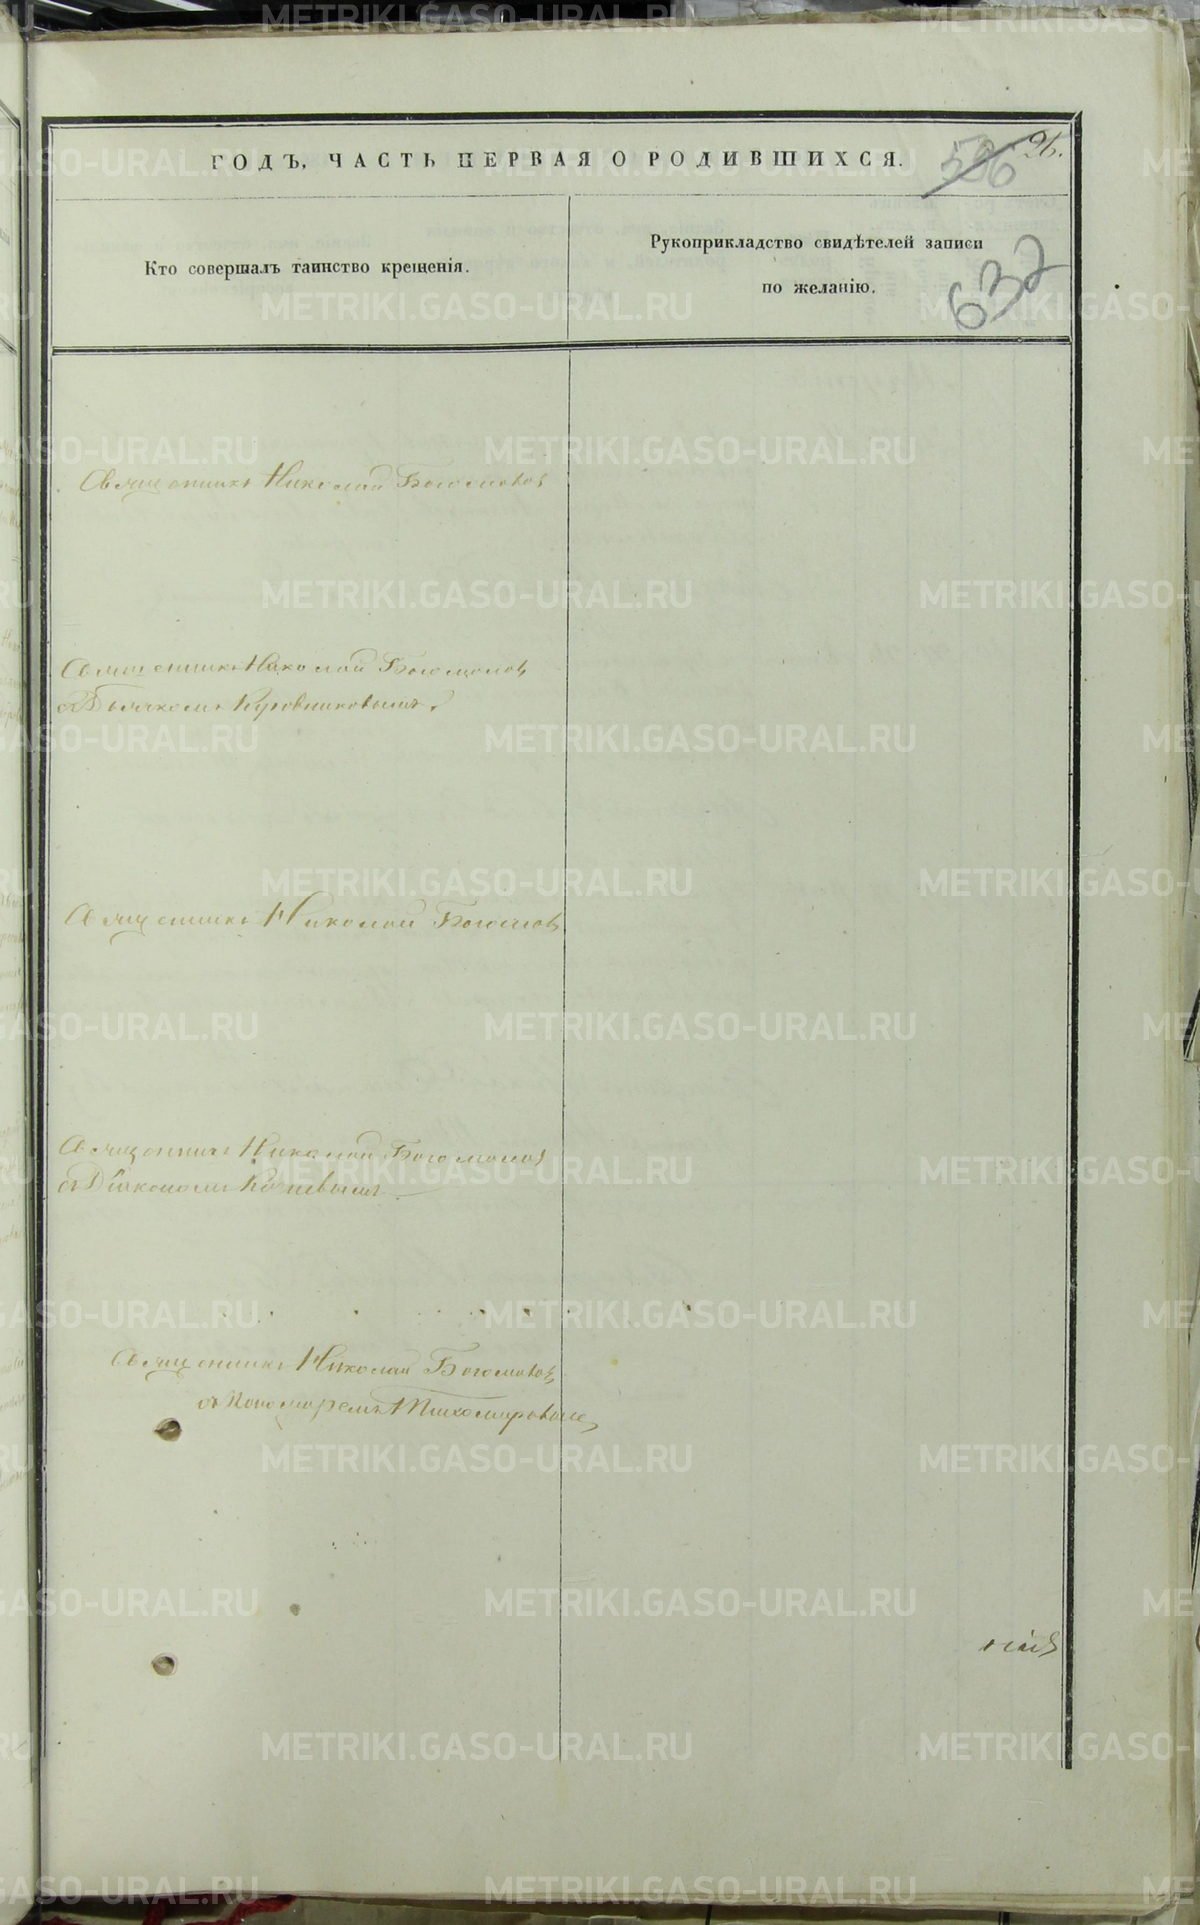 ГОДЪ, ЧАСТЬ ПЕРВАЯ О РОДИВШИХСЯ.
586 96.
Кто совершалъ таинство крещенія.
Рукоприкладство свидѣтелей записи
по желанію.
632
Священникъ Николай Богомоловъ
Священникъ Николай Богомоловъ
съ Дьячкомъ Куровниковымъ.
Священникъ Николай Богомоловъ
Священникъ Николай Богомоловъ
съ Діакономъ
Священникъ Николай Богомоловъ
съ Пономаремъ Тихомировымъ
METRIKI.GASO-URAL.RU